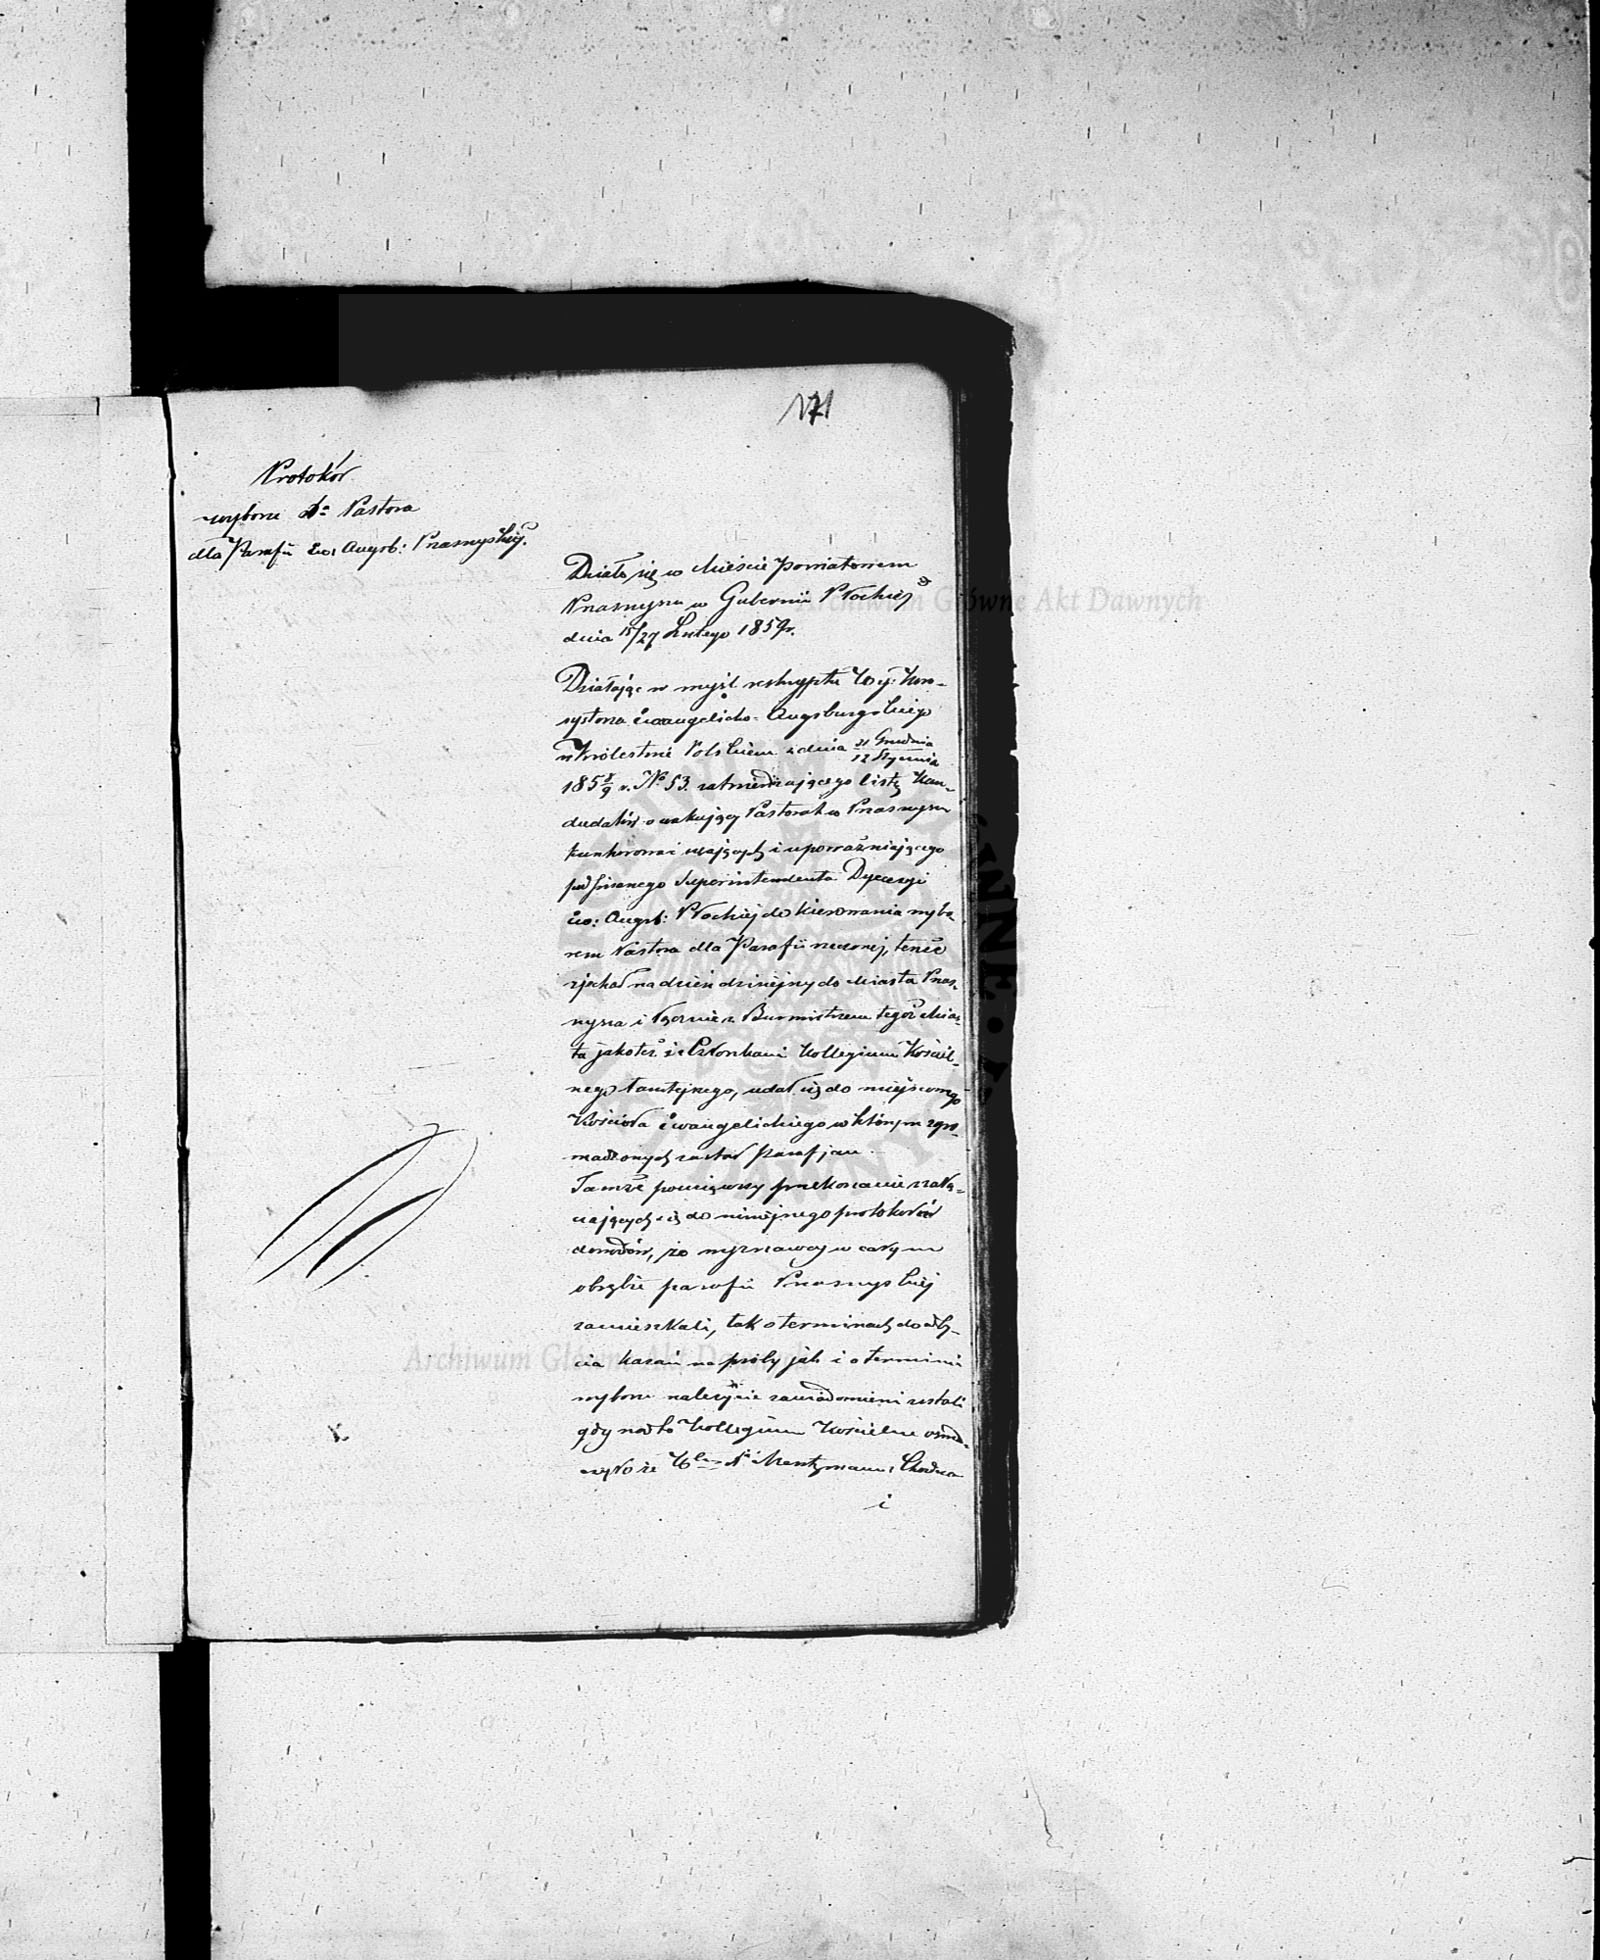 171
Protokół
wyboru X. Pastora
dla Parafii Ew: Augsb: Prasnyskiej.
Działo się w Mieście Powiatowem
Prasnyszu w Gubernii Płockiej
dnia 15/27 Lutego 1859 r.
Działając w myśl reskryptu Kon-
systorza Ewangelicko-Augsburgskiego
w Królestwie Polskiem z dnia 31 Grudnia / 12 Stycznia
185 8/9 r. No 53. zatwierdzającego listę Kan-
dydatów o wakujący Pastorat w Prasnyszu
konkurować mających i upoważniającego
podpisanego Superintendenta Dyecezyi
Ew: Augsb: Płockiej do kierowania wybo
rem Pastora dla Parafii rzeczonej, tenże
zjechał na dzień dzisiejszy do Miasta Pras-
nysza i łącznie z Burmistrzem tegoż Mias-
ta jakoteż z Członkami Kollegium Kościel-
nego tamtejszego, udał się do miejscowego
Kościoła Ewangelickiego w którym zgro-
madzonych zastał Parafjan.
Tamże powziąwszy przekonanie z załą-
czających się do niniejszego protokołu
dowodów, że wyznawcy w całym
obrębie parafii Prasnyskiej
zamieszkali, tak o terminach do odby-
cia kazań na próby jak i o terminie
wyboru należycie zawiadomieni zostali
gdy nadto Kollegium Kościelne oświad-
czyło że
i
Archiwum Główne Akt Dawnych
Archiwum Główne Akt Dawnych